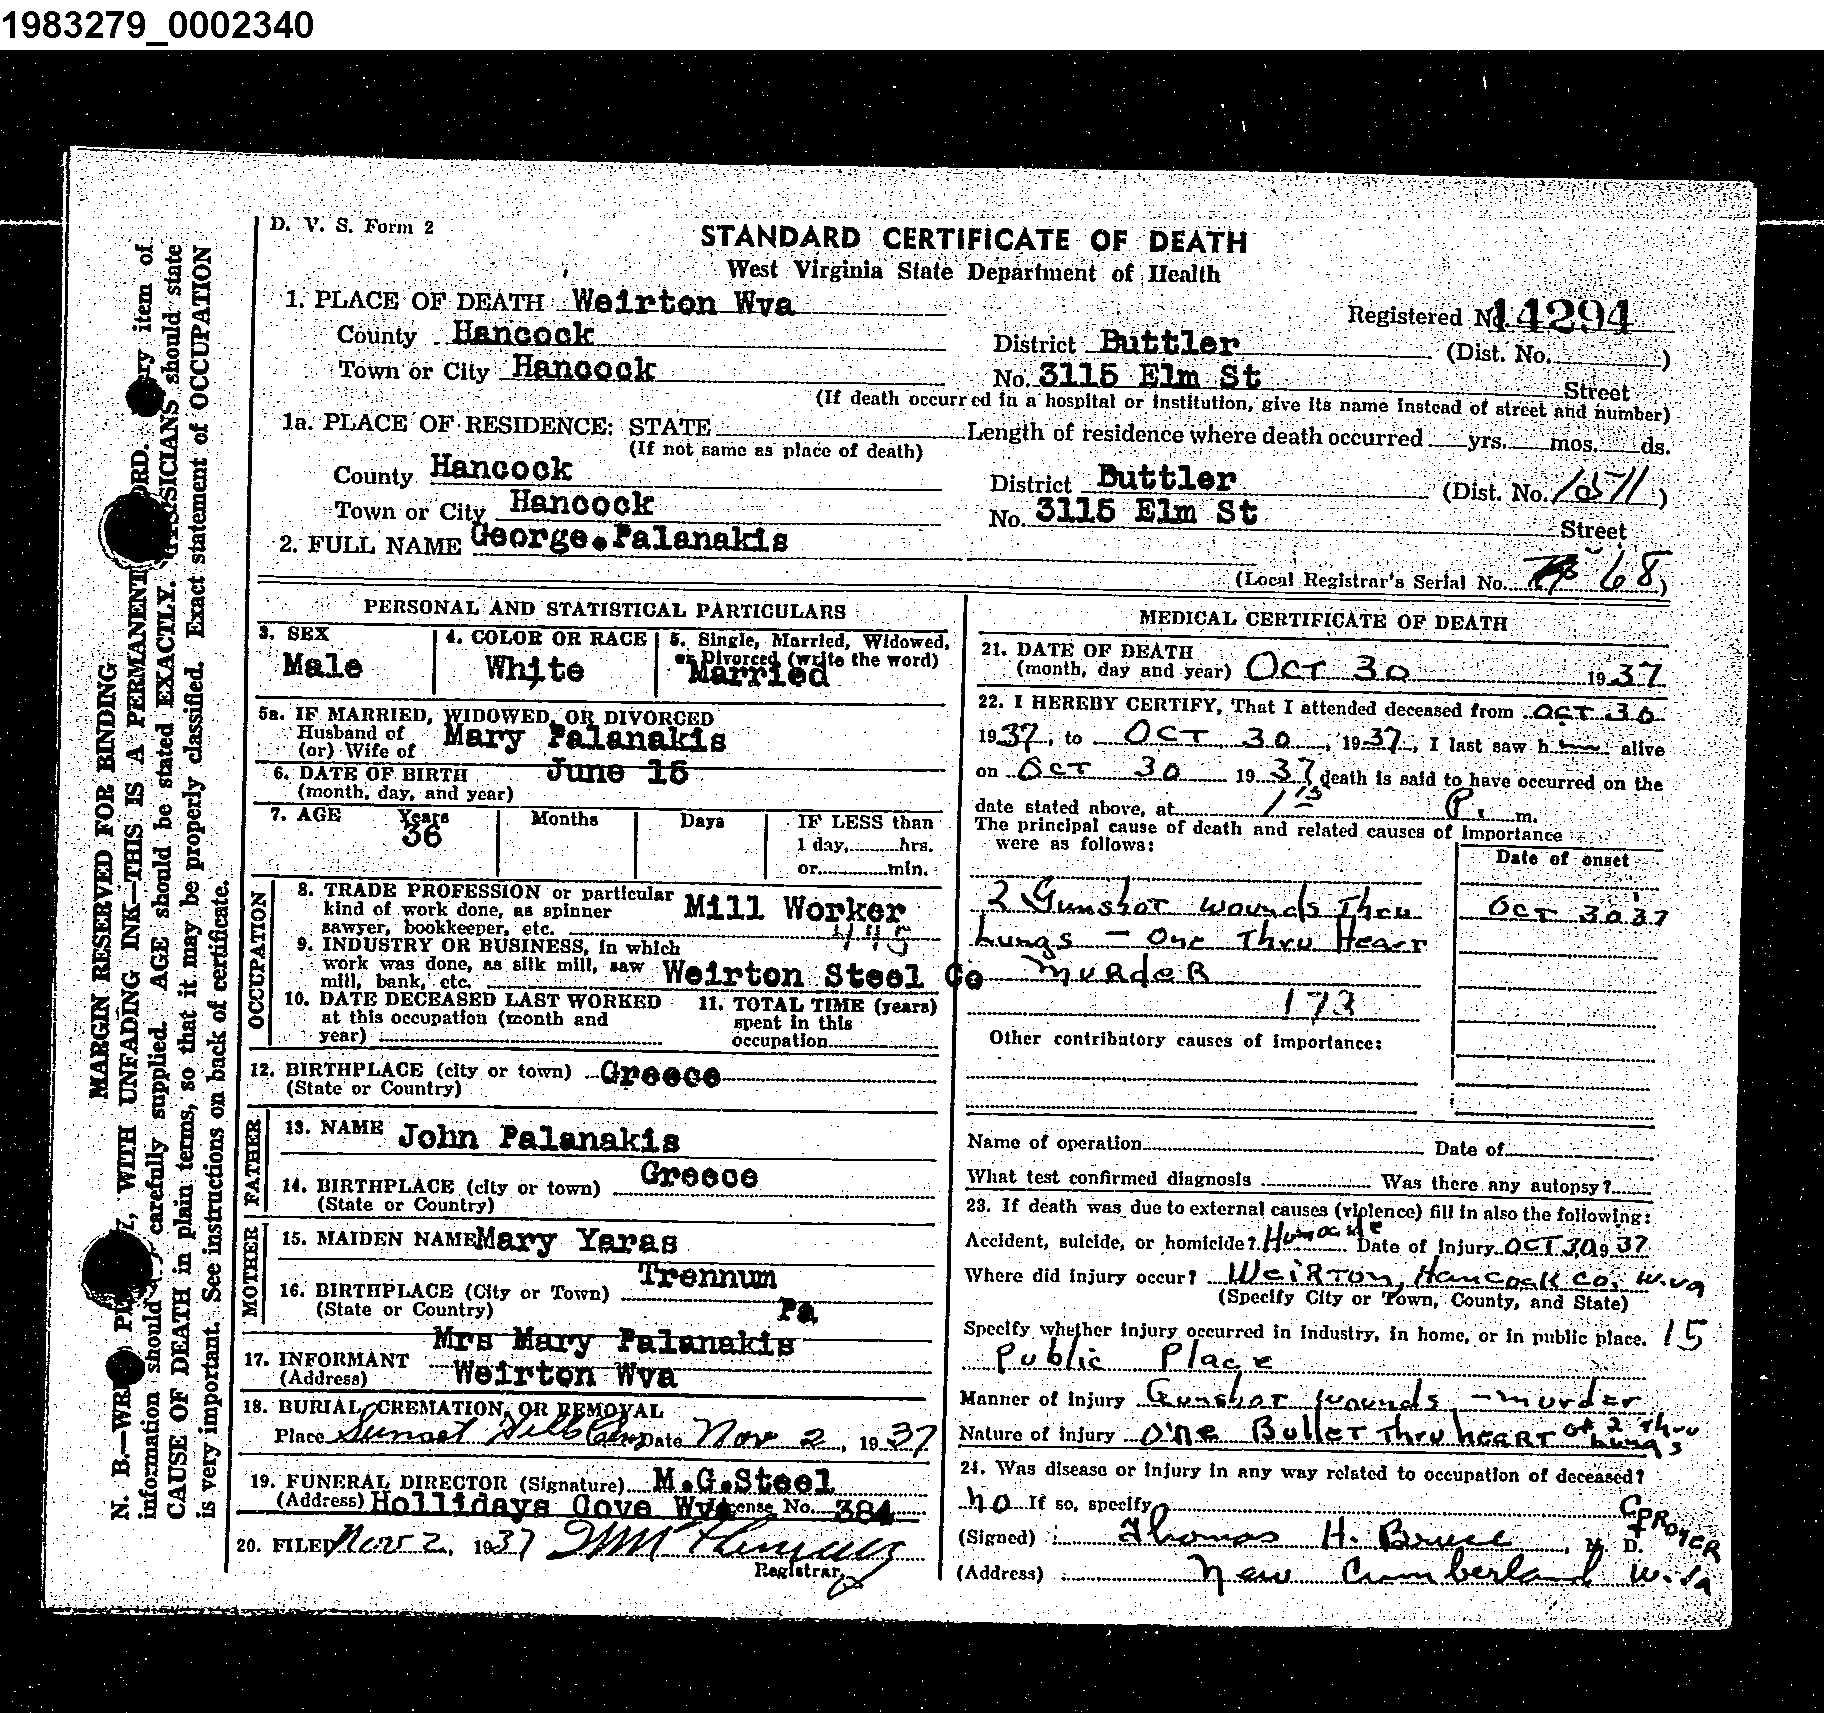 1983279_0002340
D. V. S. Form 2
STANDARD CERTIFICATE OF DEATH
West Virginia State Department of Health
1. PLACE OF DEATH Weirton Wva
Registered No. 14294
County Hancock
District Buttler (Dist. No. )
Town or City Hancock
No. 3115 Elm St Street
(If death occurred in a hospital or institution, give its name instead of street and number)
1a. PLACE OF RESIDENCE: STATE
(If not same as place of death)
Length of residence where death occurred yrs. mos. ds.
County Hancock
District Buttler (Dist. No. )
Town or City Hancock
No. 3115 Elm St Street
2. FULL NAME George.Palanakis
(Local Registrar's Serial No. 68)
PERSONAL AND STATISTICAL PARTICULARS
3. SEX
Male
4. COLOR OR RACE
White
5. Single, Married, Widowed,
or Divorced (write the word)
Married
5a. IF MARRIED, WIDOWED, OR DIVORCED
Husband of
(or) Wife of Mary Palanakis
6. DATE OF BIRTH June 15
(month, day, and year)
7. AGE Years Months Days IF LESS than
36
1 day, hrs.
or min.
OCCUPATION
8. TRADE PROFESSION or particular
kind of work done, as spinner
sawyer, bookkeeper, etc. Mill Worker
445
9. INDUSTRY OR BUSINESS, in which
work was done, as silk mill, saw
mill, bank, etc. Weirton Steel Co
10. DATE DECEASED LAST WORKED
at this occupation (month and
year)
11. TOTAL TIME (years)
spent in this
occupation
12. BIRTHPLACE (city or town) Greece
(State or Country)
FATHER
13. NAME John Palanakis
14. BIRTHPLACE (city or town) Greece
(State or Country)
MOTHER
15. MAIDEN NAME Mary Yaras
16. BIRTHPLACE (City or Town) Trennum
(State or Country) Pa
17. INFORMANT Mrs Mary Palanakis
(Address) Weirton Wva
18. BURIAL, CREMATION, OR REMOVAL
Place Sunset Hills Cem Date Nov 2, 1937
19. FUNERAL DIRECTOR (Signature) M.G.Steel
(Address) Hollidays Cove Wva License No. 384
20. FILED Nov 2, 1937
Registrar.
MEDICAL CERTIFICATE OF DEATH
21. DATE OF DEATH
(month, day and year) Oct 30 1937
22. I HEREBY CERTIFY, That I attended deceased from Oct 30
1937, to Oct 30, 1937, I last saw him alive
on Oct 30 1937 death is said to have occurred on the
date stated above, at 1 15 P. m.
The principal cause of death and related causes of importance
were as follows:
Date of onset
2 Gunshot wounds Thru Oct 30 37
Lungs - One Thru Heart
Murder
173
Other contributory causes of importance:
Name of operation Date of
What test confirmed diagnosis Was there any autopsy?
23. If death was due to external causes (violence) fill in also the following:
Accident, suicide, or homicide? Homocide Date of injury Oct 30 1937
Where did injury occur? Weirton, Hancock Co. W.Va
(Specify City or Town, County, and State)
Specify whether injury occurred in industry, in home, or in public place. 15
Public Place
Manner of injury Gunshot wounds - murder
Nature of injury One Bullet Thru heart of 2 thru lungs
24. Was disease or injury in any way related to occupation of deceased?
no If so, specify
(Signed) Thomas H. Bruce, M. D.
(Address) New Cumberland W.Va
MARGIN RESERVED FOR BINDING
WITH UNFADING INK—THIS IS A PERMANENT
information should carefully supplied. AGE should be stated EXACTLY. should state
CAUSE OF DEATH in plain terms, so that it may be properly classified. Exact statement of OCCUPATION
is very important. See instructions on back of certificate.